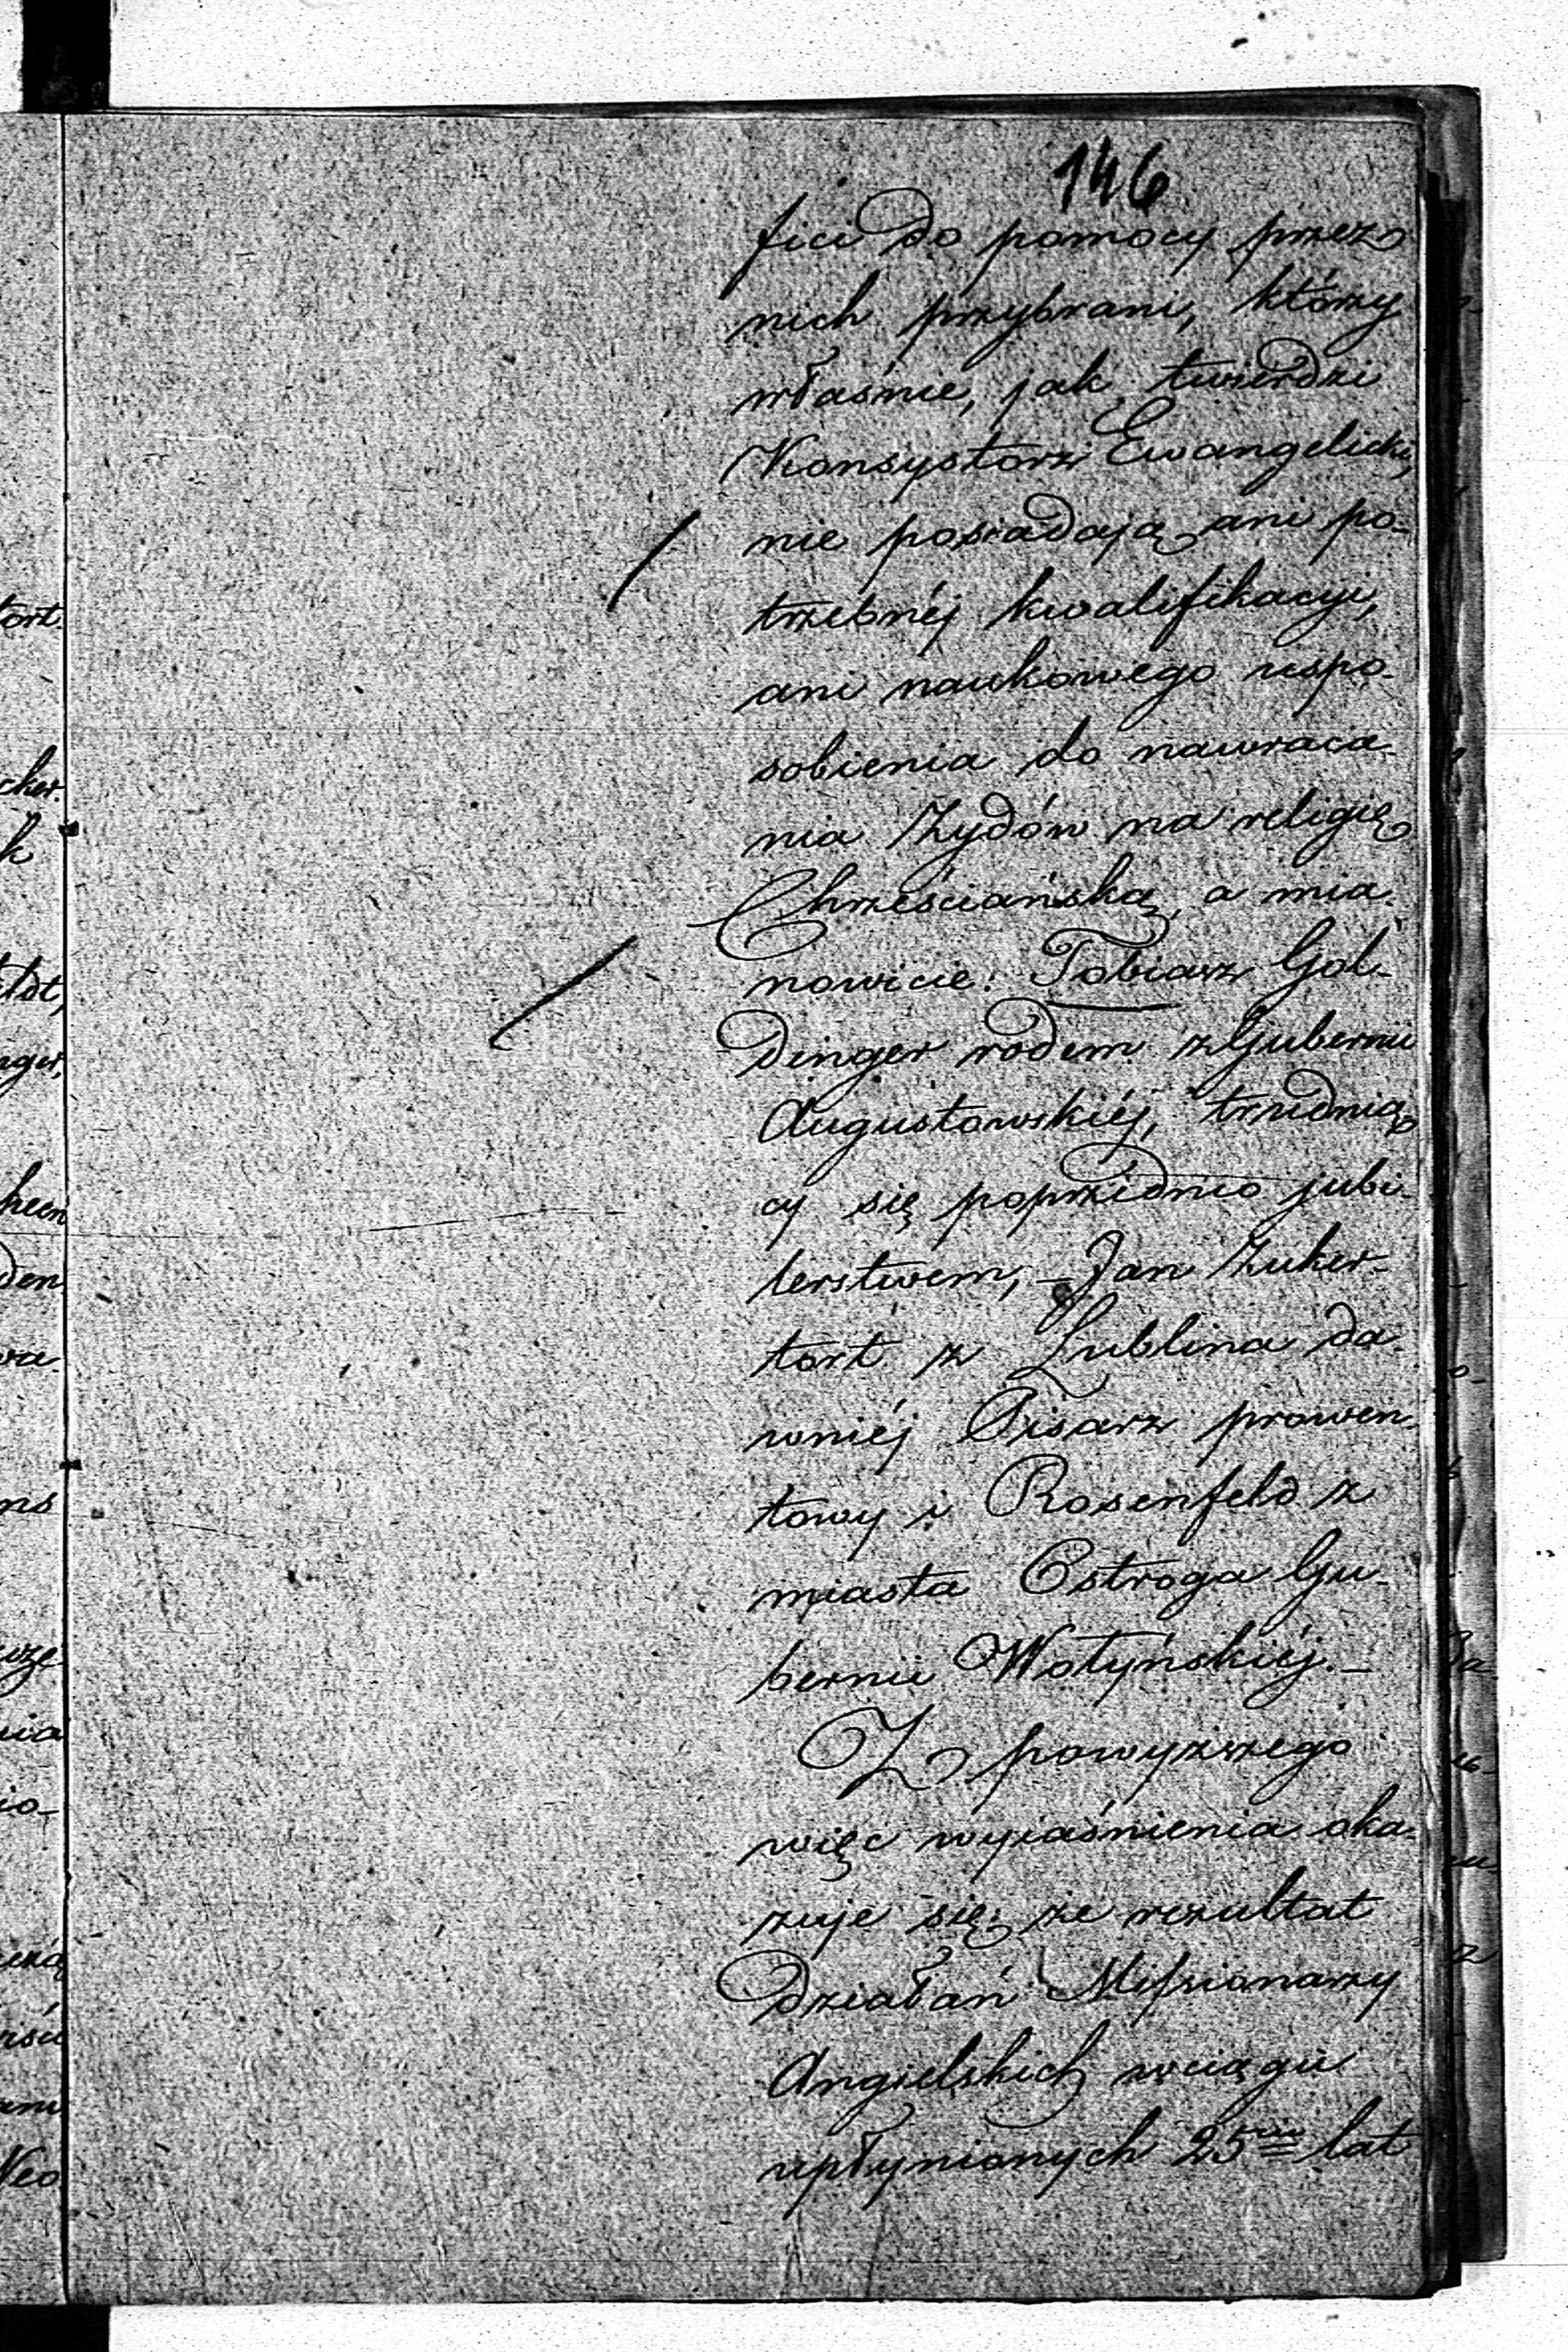 146
fici do pomocy przez
nich przybrani, którzy
właśnie, jak twierdzi
Konsystorz Ewangelicki,
nie posiadają ani po-
trzebnéj kwalifikacyi,
ani naukowego uspo-
sobienia do nawraca-
nia Żydów na religię
Chrześciańską, a mia-
nowicie: Tobiasz Gol-
dinger rodem z Gubernii
Augustowskiéj, trudnią
cy się poprzednio jubi-
lerstwem, – Jan Zuker-
tort z Lublina da-
wniéj Pisarz prowen-
towy i Rosenfeld z
miasta Ostroga Gu-
bernii Wołyńskiéj. –
Z powyższego
więc wyiaśnienia oka-
zuje się; że rezultat
działań Missionarzy
Angielskich wciągu
upłynionych 25ciu lat
tort.
cher.
k
ldt,
nger,
den
wa-
ns
nia
io-
Neo